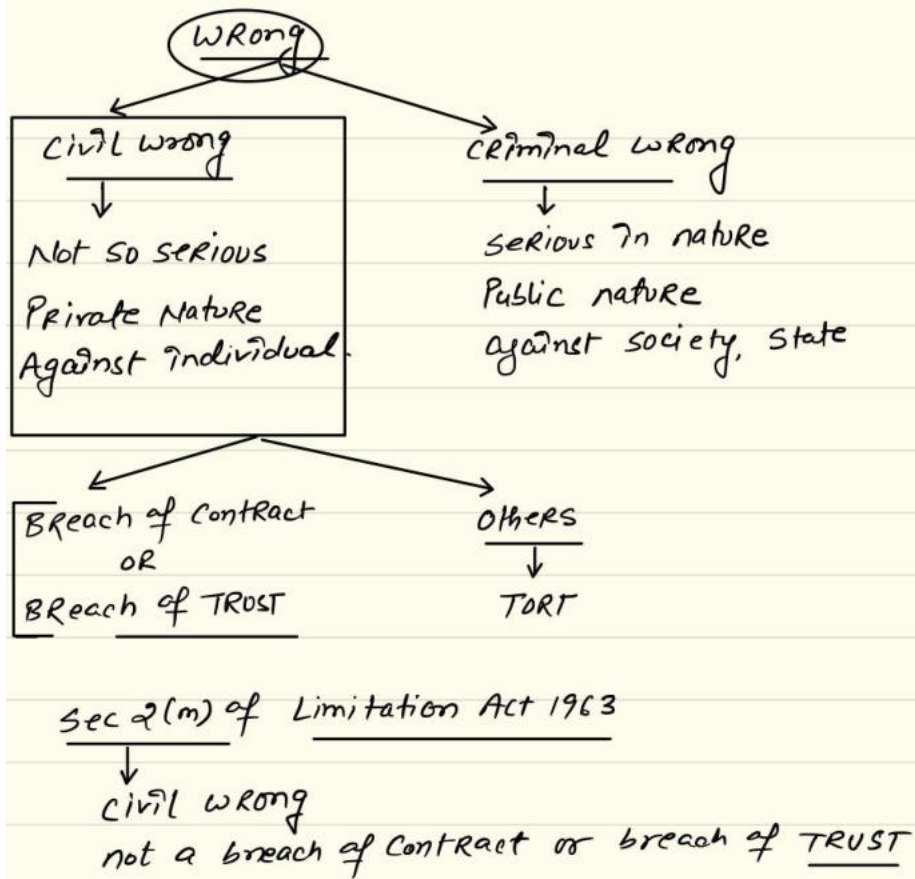 WRong
Civil wrong
CRiminal wRong
Not so seRious
PRivate NatuRe
Against individual.
seRious in natuRe
Public natuRe
against society, State
BReach of ContRact
OR
BReach of TRUST
OtheRs
TORT
Sec 2(m) of Limitation Act 1963
Civil wRong
not a breach of ContRact or breach of TRUST